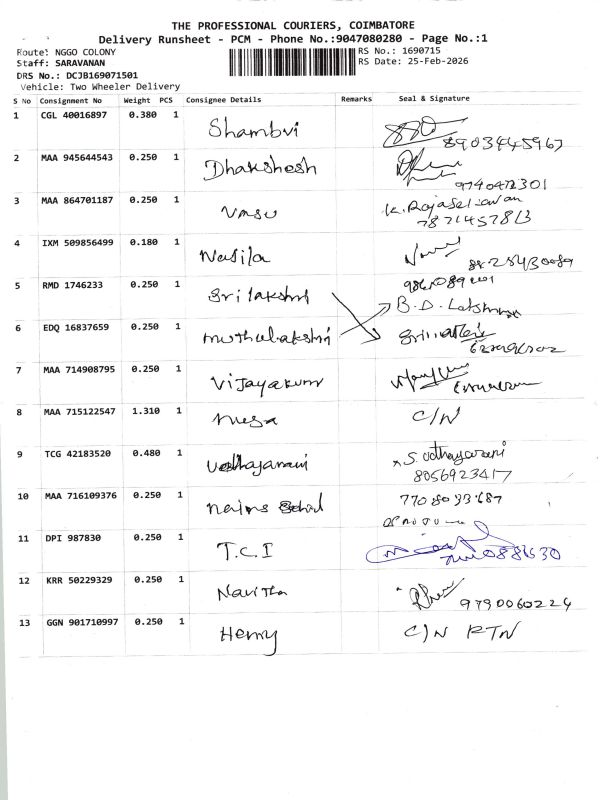 THE PROFESSIONAL COURIERS, COIMBATORE
Delivery Runsheet - PCM - Phone No.:9047080280 - Page No.:1
Route: NGGO COLONY RS No.: 1690715
Staff: SARAVANAN RS Date: 25-Feb-2026
DRS No.: DCJB169071501
Vehicle: Two Wheeler Delivery
S No Consignment No Weight PCS Consignee Details Remarks Seal & Signature
1 CGL 40016897 0.380 1 Shambvi 8903445967
2 MAA 945644543 0.250 1 Dhakshesh 9740472301
3 MAA 864701187 0.250 1 Vasu K. Rajaselvaran
7871457813
4 IXM 509856499 0.180 1 Nasila
5 RMD 1746233 0.250 1 Srilakshmi
B.D. Lakshman
6 EDQ 16837659 0.250 1 muthulakshmi
7 MAA 714908795 0.250 1 Vijayakum
8 MAA 715122547 1.310 1 C/N
9 TCG 42183520 0.480 1 Udhayarani S. Udhayarani
8056923417
10 MAA 716109376 0.250 1
11 DPI 987830 0.250 1 T.C.I
12 KRR 50229329 0.250 1 Navitha 9790060224
13 GGN 901710997 0.250 1 Henry C/N RTN